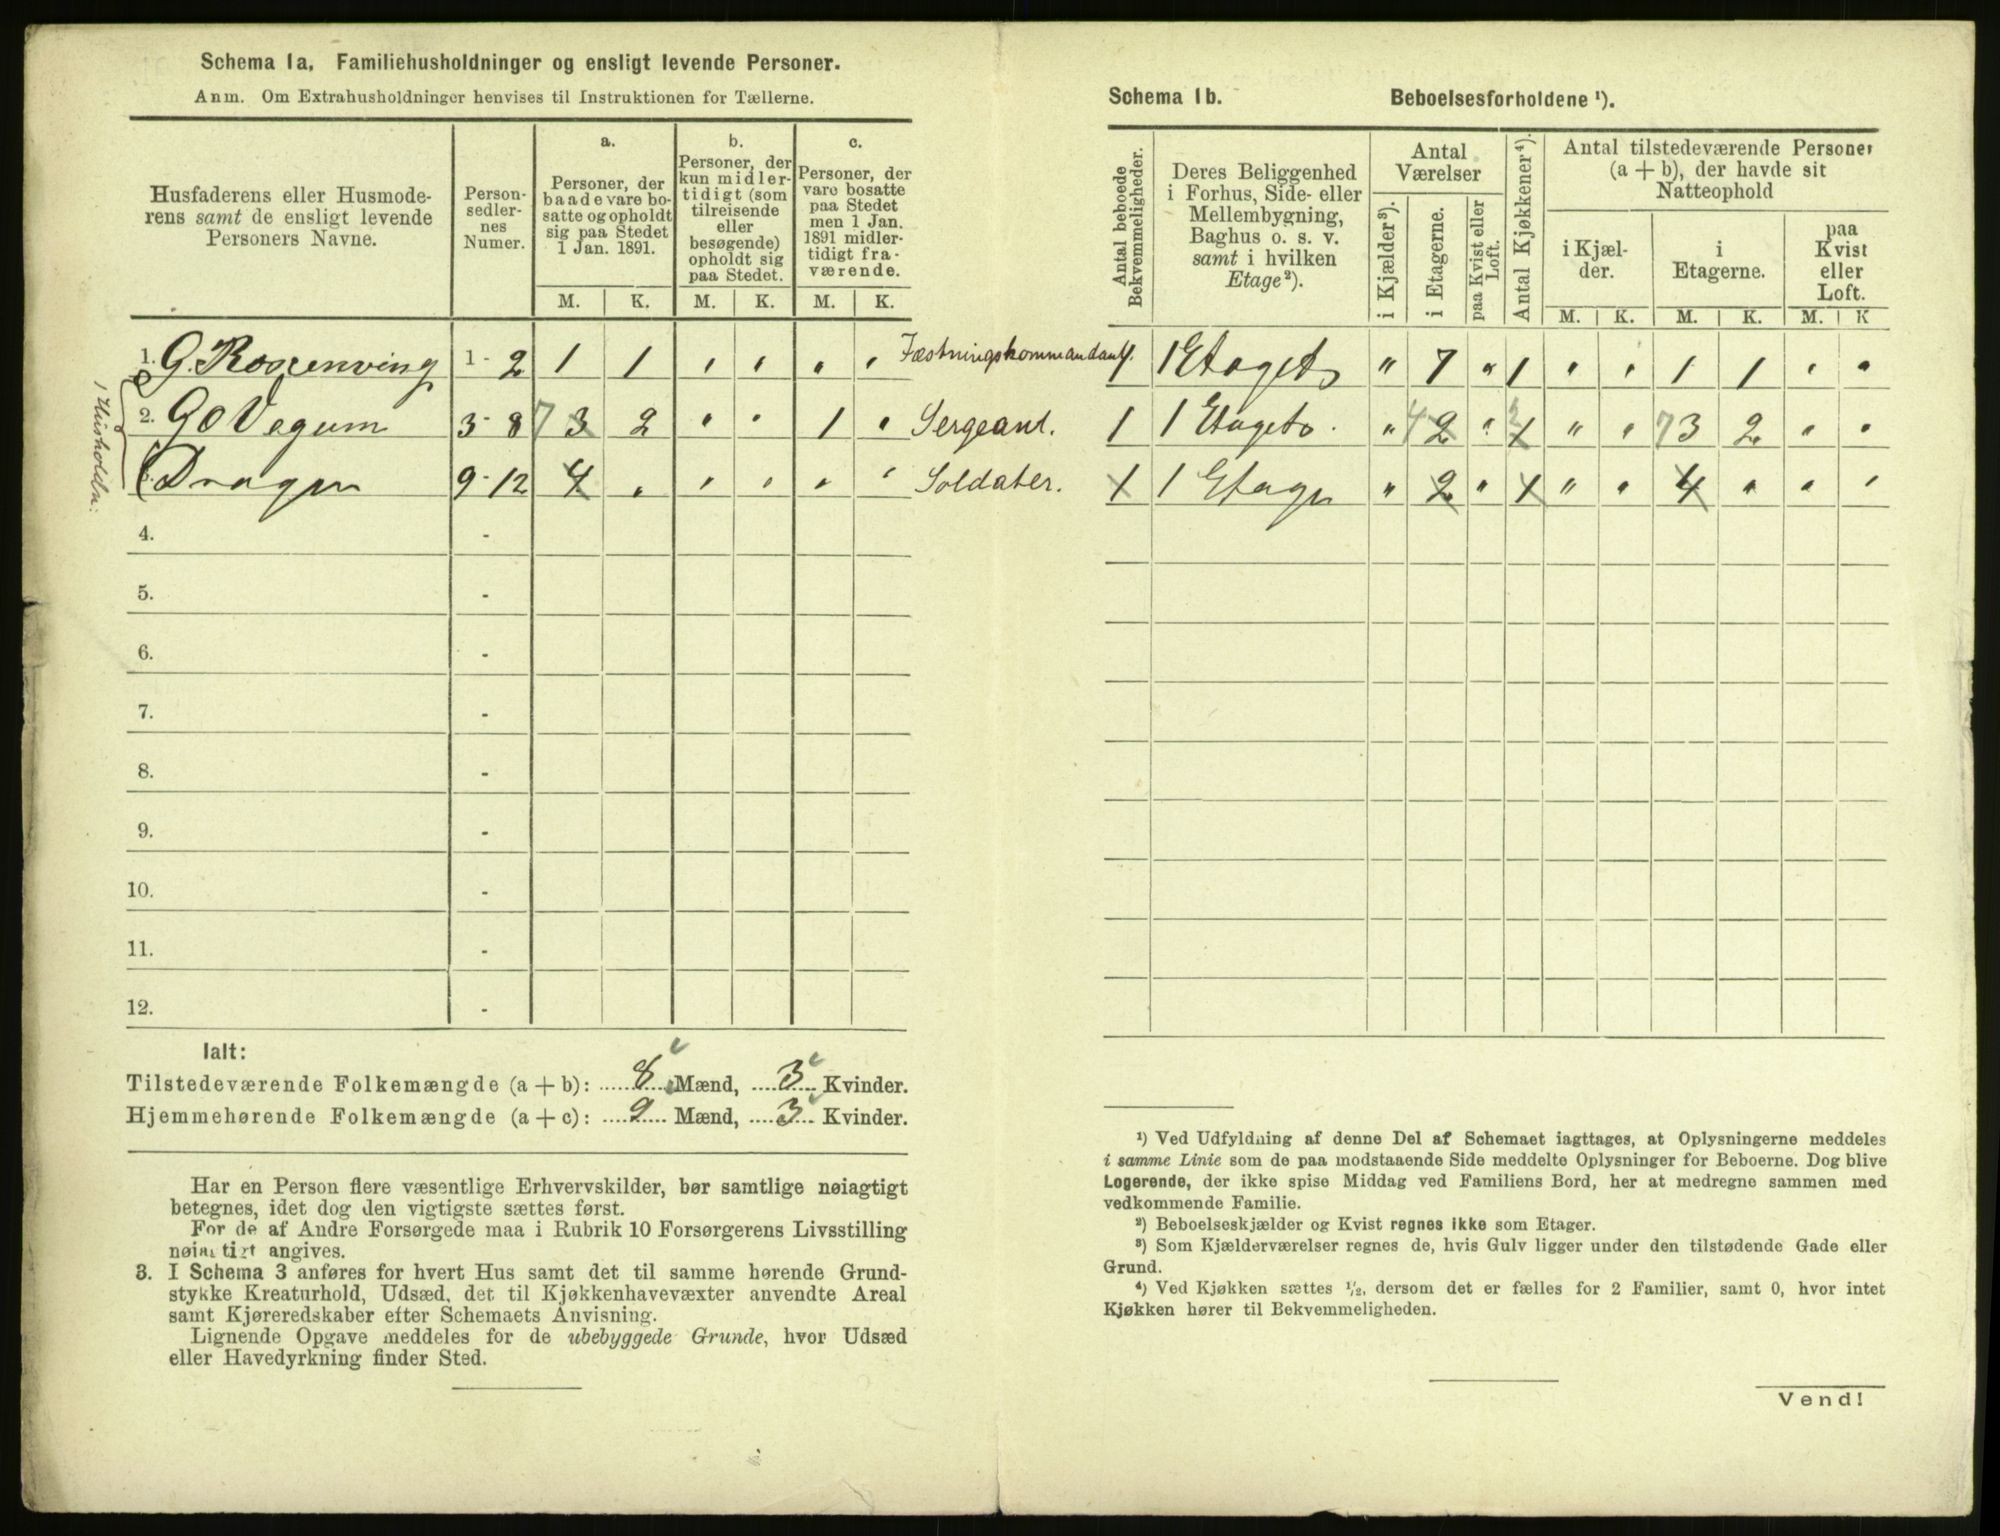 Schema 1a. Familiehusholdninger og ensligt levende Personer.
Anm. Om Extrahusholdninger henvises til Instruktionen for Tællerne.
Husfaderens eller Husmode-
rens samt de ensligt levende
Personers Navne.
Person-
sedler-
nes
Numer.
a.
Personer, der
baade vare bo-
satte og opholdt
sig paa Stedet
1 Jan. 1891.
b.
Personer, der
kun midler-
tidigt (som
tilreisende
eller
besøgende)
opholdt sig
paa Stedet.
c.
Personer, der
vare bosatte
paa Stedet
men 1 Jan.
1891 midler-
tidigt fra-
værende.
M. K. M. K. M. K.
1. G. Rosenving 1 - 2 1 1 " " " " Fæstningskommandant.
2. G O Vegum 3 - 8 7 3 2 " " 1 " Sergeant.
Dragen 9 - 12 4 " " " " " Soldater.
1 Husholdn:
4. -
5. -
6. -
7. -
8. -
9. -
10. -
11. -
12. -
Ialt:
Tilstedeværende Folkemængde (a + b): 8 Mænd, 3 Kvinder.
Hjemmehørende Folkemængde (a + c): 9 Mænd, 3 Kvinder.
Har en Person flere væsentlige Erhvervskilder, bør samtlige nøiagtigt
betegnes, idet dog den vigtigste sættes først.
For de af Andre Forsørgede maa i Rubrik 10 Forsørgerens Livsstilling
nøiagtigt angives.
3. I Schema 3 anføres for hvert Hus samt det til samme hørende Grund-
stykke Kreaturhold, Udsæd, det til Kjøkkenhavevæxter anvendte Areal
samt Kjøreredskaber efter Schemaets Anvisning.
Lignende Opgave meddeles for de ubebyggede Grunde, hvor Udsæd
eller Havedyrkning finder Sted.
Schema 1b. Beboelsesforholdene ¹).
Antal beboede
Bekvemmeligheder.
Deres Beliggenhed
i Forhus, Side- eller
Mellembygning,
Baghus o. s. v.
samt i hvilken
Etage²).
Antal
Værelser
i Kjælder³).
i Etagerne.
paa Kvist eller
Loft.
Antal Kjøkkener⁴).
Antal tilstedeværende Personer
(a + b), der havde sit
Natteophold
i Kjæl-
der.
i
Etagerne.
paa
Kvist
eller
Loft.
M. K. M. K. M. K
1 1 Etaget " 7 " 1 " " 1 1 " "
1 1 Etaget " 4 2 " 1 " " 7 3 2 " "
1 1 Etage " 2 " 1 " " 4 " " "
¹) Ved Udfyldning af denne Del af Schemaet iagttages, at Oplysningerne meddeles
i samme Linie som de paa modstaaende Side meddelte Oplysninger for Beboerne. Dog blive
Logerende, der ikke spise Middag ved Familiens Bord, her at medregne sammen med
vedkommende Familie.
²) Beboelseskjælder og Kvist regnes ikke som Etager.
³) Som Kjælderværelser regnes de, hvis Gulv ligger under den tilstødende Gade eller
Grund.
⁴) Ved Kjøkken sættes ¹/₂, dersom det er fælles for 2 Familier, samt 0, hvor intet
Kjøkken hører til Bekvemmeligheden.
Vend!